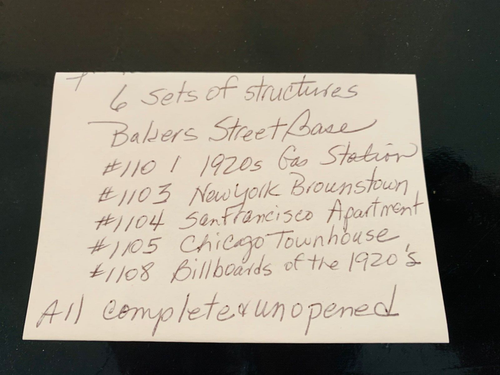 6 sets of structures
Bakers Street Base
#1101 1920s Gas Station
#1103 New York Brownstown
#1104 San Francisco Apartment
#1105 Chicago Townhouse
#1108 Billboards of the 1920's
All complete & unopened